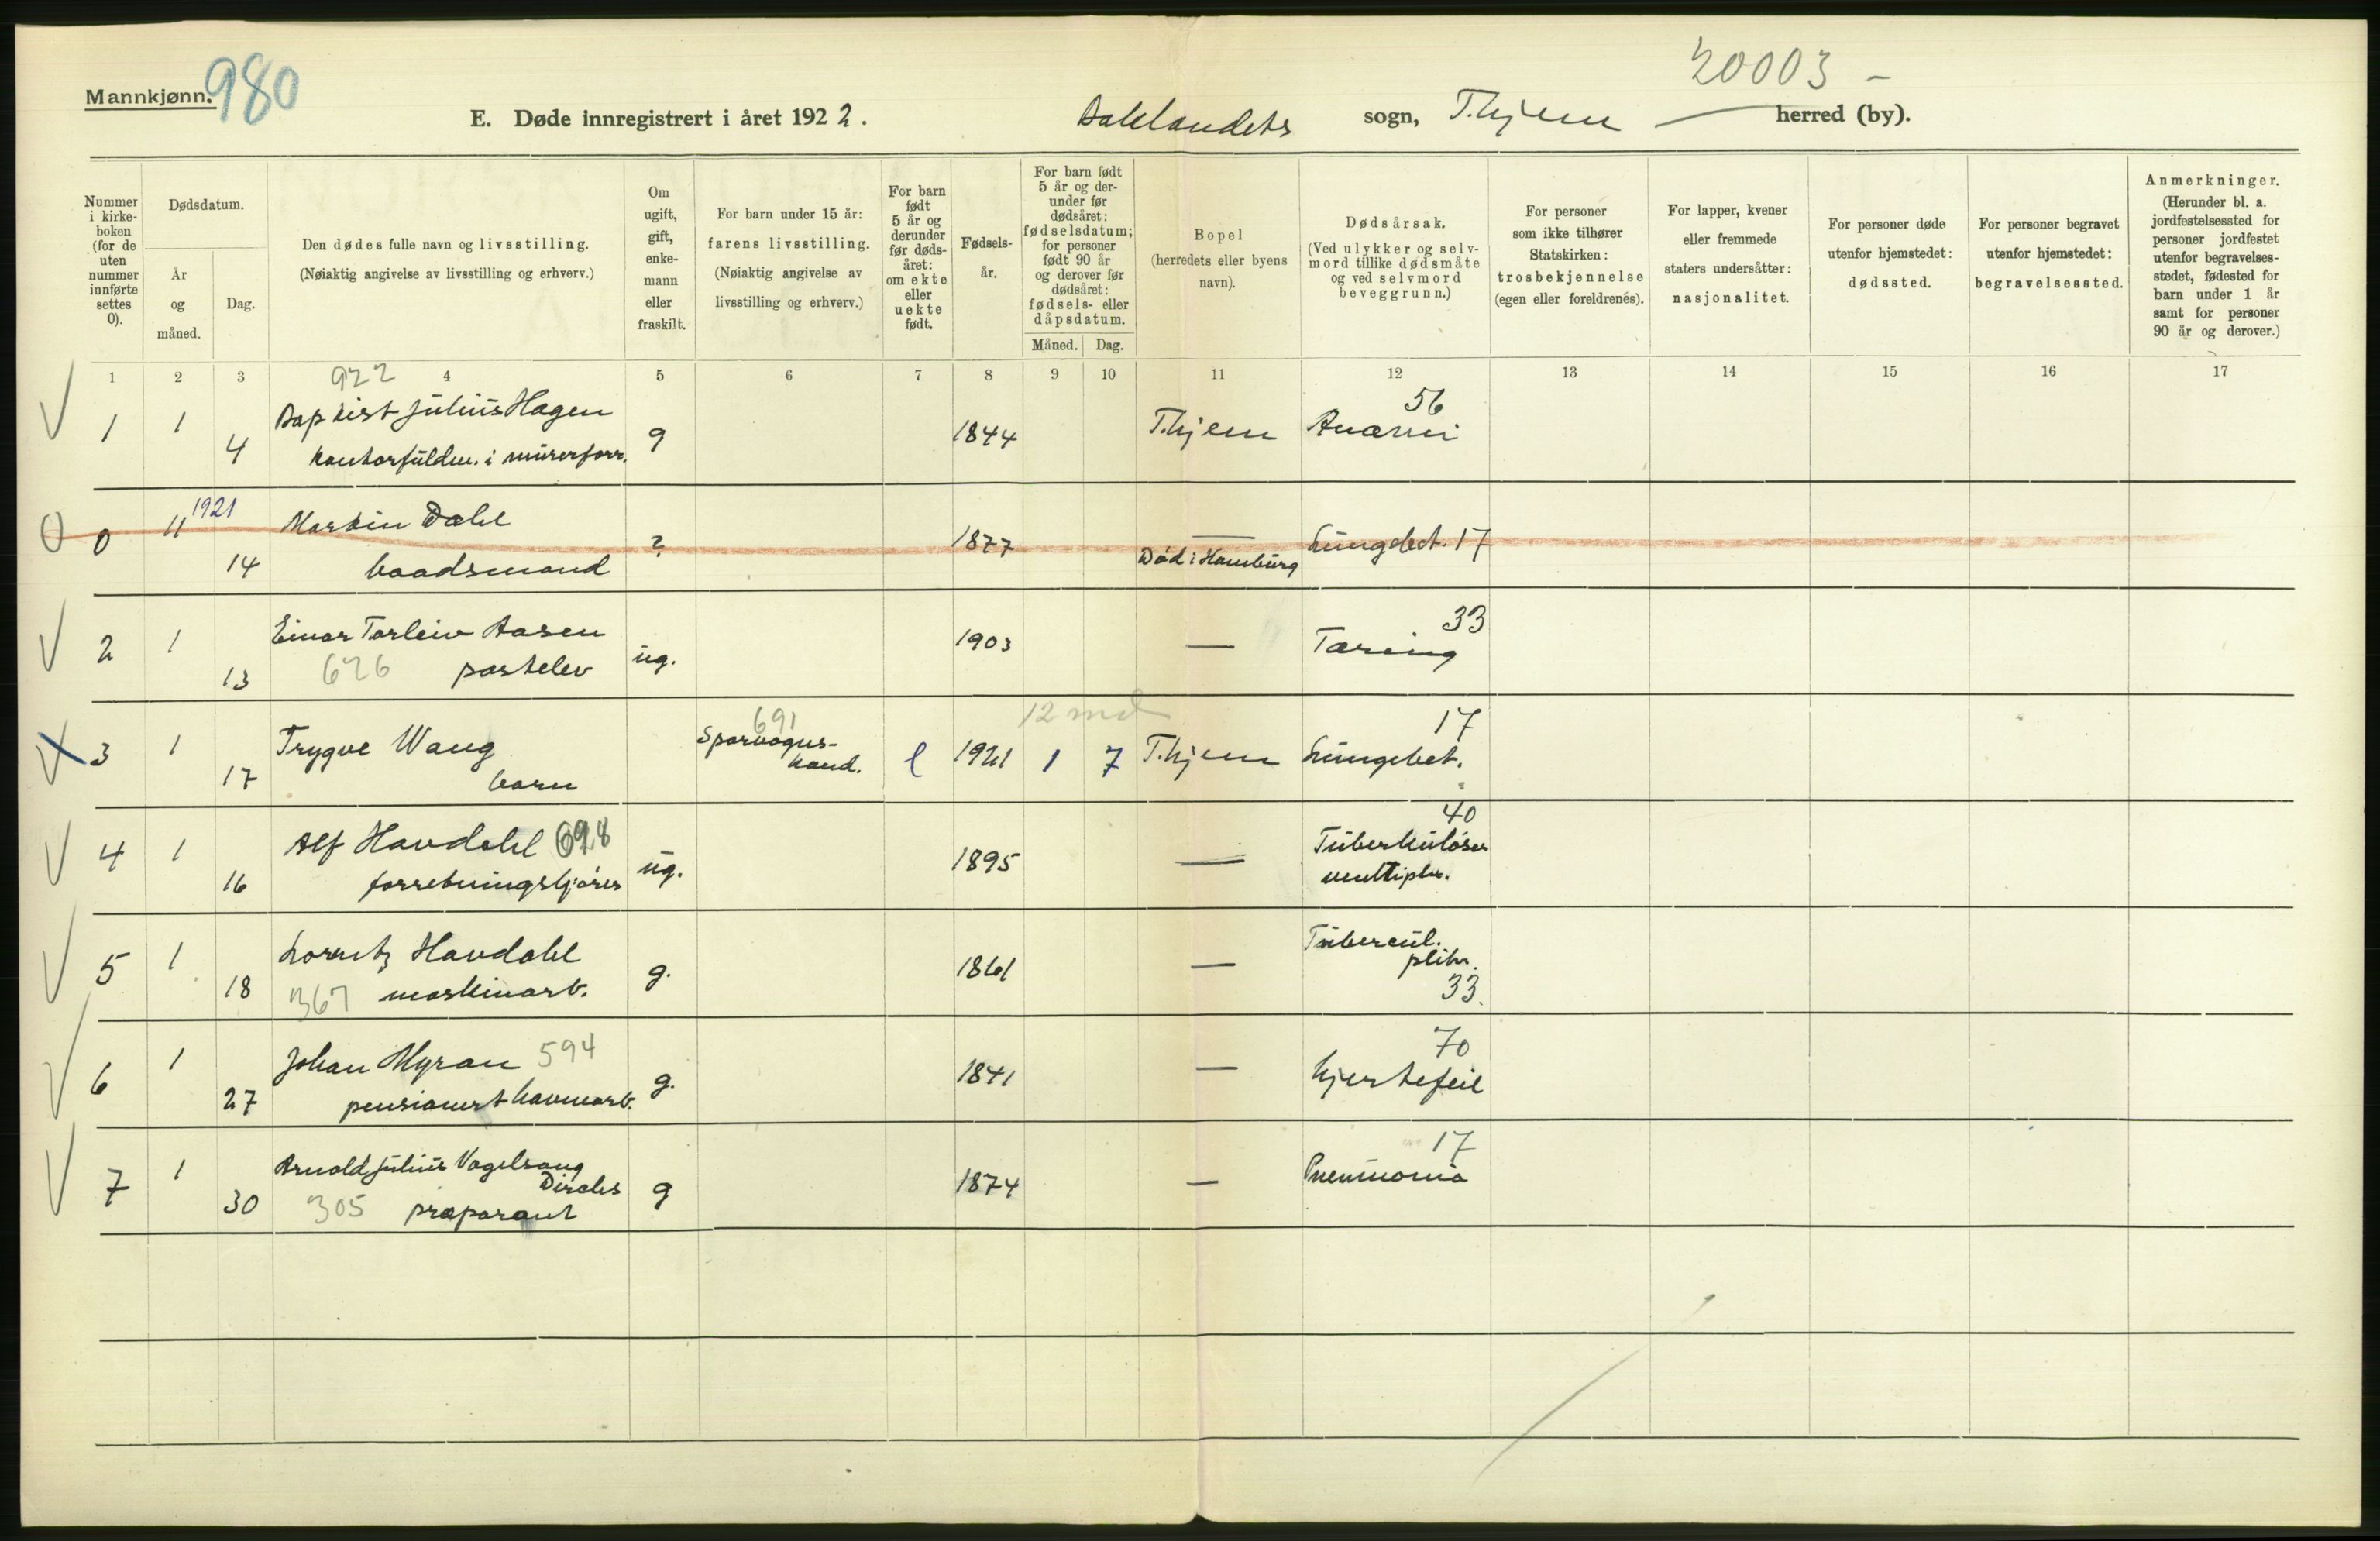 20003 -
Mannkjønn. 980
E. Døde innregistrert i året 1922. Baklandets sogn, T.hjem — herred (by).
Nummer i kirke- boken (for de uten nummer innførte settes 0).
Dødsdatum.
År og måned.
Dag.
Den dødes fulle navn og livsstilling.
(Nøiaktig angivelse av livsstilling og erhverv.)
Om ugift, gift, enke- mann eller fraskilt.
For barn under 15 år:
farens livsstilling.
(Nøiaktig angivelse av
livsstilling og erhverv.)
For barn født 5 år og derunder før døds- året: om ekte eller uekte født.
Fødsels- år.
For barn født 5 år og der- under før dødsåret: fødselsdatum; for personer født 90 år og derover før dødsåret: fødsels- eller dåpsdatum.
Måned. Dag.
Bopel
(herredets eller byens
navn).
Dødsårsak.
(Ved ulykker og selv-
mord tillike dødsmåte
og ved selvmord
beveggrunn.)
For personer
som ikke tilhører
Statskirken:
trosbekjennelse
(egen eller foreldrenes).
For lapper, kvener
eller fremmede
staters undersåtter:
nasjonalitet.
For personer døde
utenfor hjemstedet:
dødssted.
For personer begravet
utenfor hjemstedet:
begravelsessted.
Anmerkninger.
(Herunder bl. a.
jordfestelsessted for
personer jordfestet
utenfor begravelses-
stedet, fødested for
barn under 1 år
samt for personer
90 år og derover.)
1 2 3 4 5 6 7 8 9 10 11 12 13 14 15 16 17
922 56
1 1 Baptist Julius Hagen g 1844 T.hjem Anæmi
4 kontorfuldm. i murerforr.
1921
0 11 Martin Dahl ? 1877 — Lungebet. 17
14 baadsmand Død i Hamburg
33
2 1 Einar Torleiv Aasen ug. 1903 — Tæring
13 626 postelev
691 12 md 17
3 1 Trygve Wang Sporvogns- e 1921 1 7 T.hjem Lungebet.
17 barn kond.
40
4 1 Alf Havdahl 698 ug. 1895 — Tuberkuløser
16 forretningsbjører multiple.
5 1 Lorentz Havdahl g. 1861 — Tubercul.
18 367 maskinarb. phth.
33.
70
6 1 Johan Myran 594 g. 1841 — Hjertefeil
27 pensionert havnearb.
17
7 1 Arnold Julius Vogelsang g 1874 — Pneumonia
Dircks
30 305 præparant